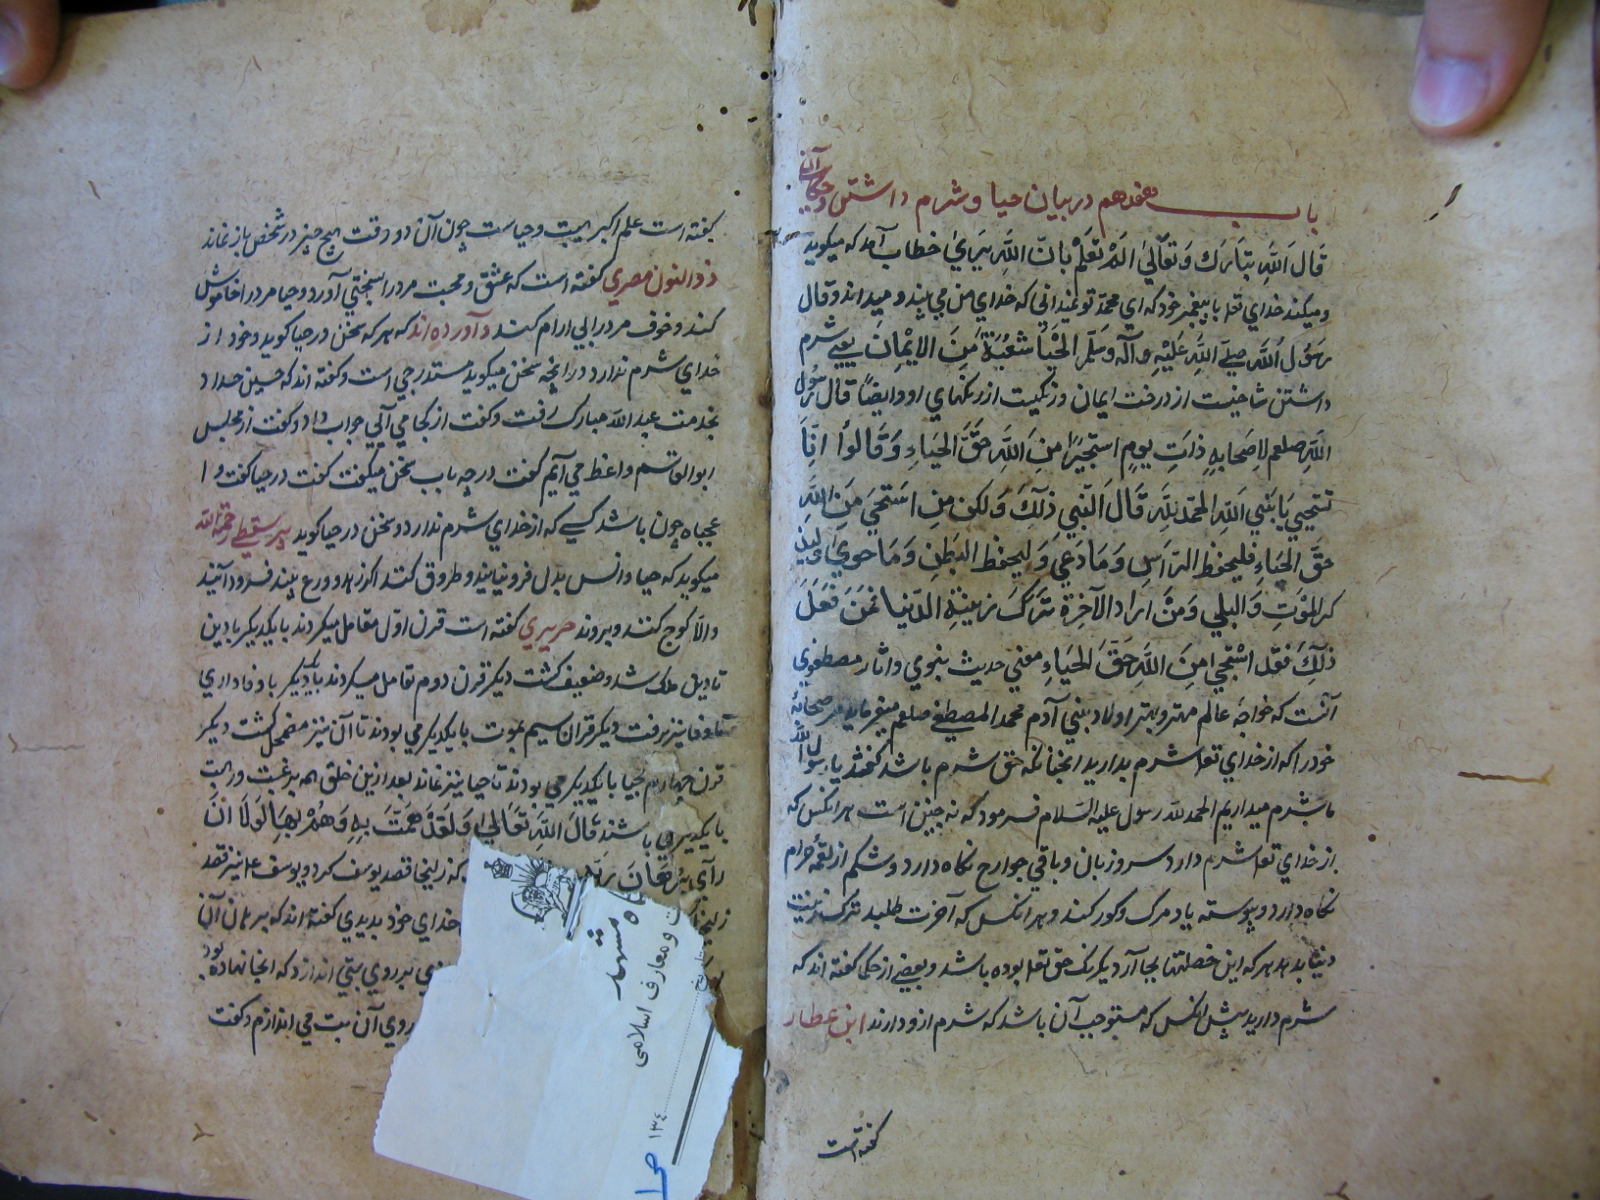 باب هفدهم در بیان حیا و شرم داشتن و حکایات آن
قال الله تبارک و تعالی الم تعلم بان الله یری خطاب آمد که میکوید
و میکند خدای تعا با پیغمبر خود که ای محمد تو نمیدانی که خدای من می بیند و میداند و قال
رسول الله صلی الله علیه و آله و سلم الحیا شعبة من الایمان یعنی شرم
داشتن شاخیست از درخت ایمان و رنکیست از رنکهای او و ایضا قال رسول
الله صلعم لاصحابه ذات یوم استحیوا من الله حق الحیاء و قالوا انا
نستحیی یا نبی الله الحمد لله قال النبی ذلک و لکن من استحی من الله
حق الحیاء فلیحفظ الراس و ما وعی و لیحفظ البطن و ما حوی و لیذ
کر الموت و البلی و من اراد الآخرة ترک زینة الدنیا فمن فعل
ذلک فقد استحیی من الله حق الحیاء معنی حدیث نبوی و آثار مصطفوی
آنست که خواجه عالم مهتر و بهتر اولاد بنی آدم محمد المصطفی صلعم میفرماید مر صحابه
خود را که از خدای تعا شرم بدارید انچنانکه حق شرم باشد کفتند یا رسول الله
ما شرم میداریم الحمد لله رسول علیه السلام فرمود که نه چنین است هر انکس که
از خدای تعا شرم دارد سر و زبان و باقی جوارح نکاه دارد و شکم از لقمه حرام
نکاه دارد و پیوسته یاد مرک و کور کند و هر انکس که آخرت طلبد ترک زینت
دنیا بدهد هر که این خصلتها بجا آرد یکرنک حق تعا بوده باشد و بعضی از حکما کفته اند که
شرم دارید پیش انکس که مستوجب آن باشد که شرم ازو دارند ابن عطار
کفته است
کفته است علم اکبر هیبت و حیاست چون آن دو رفت هیچ چیز در شخص باز نماند
ذو النون مصری کفته است که عشق و محبت مرد را بسخن آورد و حیا مرد را خاموش
کند و خوف مرد را بی ارام کند و آورده اند که هر که سخن در حیا کوید و خود از
خدای شرم ندارد در انچه سخن میکوید مستدرجی است و کفته اند که حسین حداد
بخدمت عبد الله مبارک رفت و کفت از کجا می آئی جواب داد و کفت از مجلس
ابو القاسم واعظ می آیم کفت در چه باب سخن میکفت کفت در حیا کفت وا
عجباه چون باشد کسی که از خدای شرم ندارد و سخن در حیا کوید پیر سقطی رحمة الله
میکوید که حیا و انس بدل فرونیایند و طروق کنند اکر زهد و ورع بینند فرود آیند
والا کوچ کنند و بروند حریری کفته است قرن اول معامل میکردند با یکدیکر بادین
تا دین هلاک شد و ضعیف کشت دیکر قرن دوم تعامل میکردند با یکدیکر با وفاداری
تا وفا نیز برفت دیکر قران سیم بموت با یکدیکر می بودند تا آن نیز مضمحل کشت دیکر
قرن چهارم بحیا با یکدیکر می بودند تا حیا نیز نماند بعد ازین خلق همه برغبت و رهبت
با یکدیکر می باشند قال الله تعالی و لقد همت به و هم بها لولا ان
رآی برهان ربه که زلیخا قصد یوسف کرد و یوسف ع م نیز قصد
زلیخا خدای خود بدیدی کفته اند که برهان آن
بود بر روی بتی اندازد که انجا نهاده بود
روی آن بت می اندازم و کفت
مشهد
و معارف اسلامی
تاریخ
۱۳۴